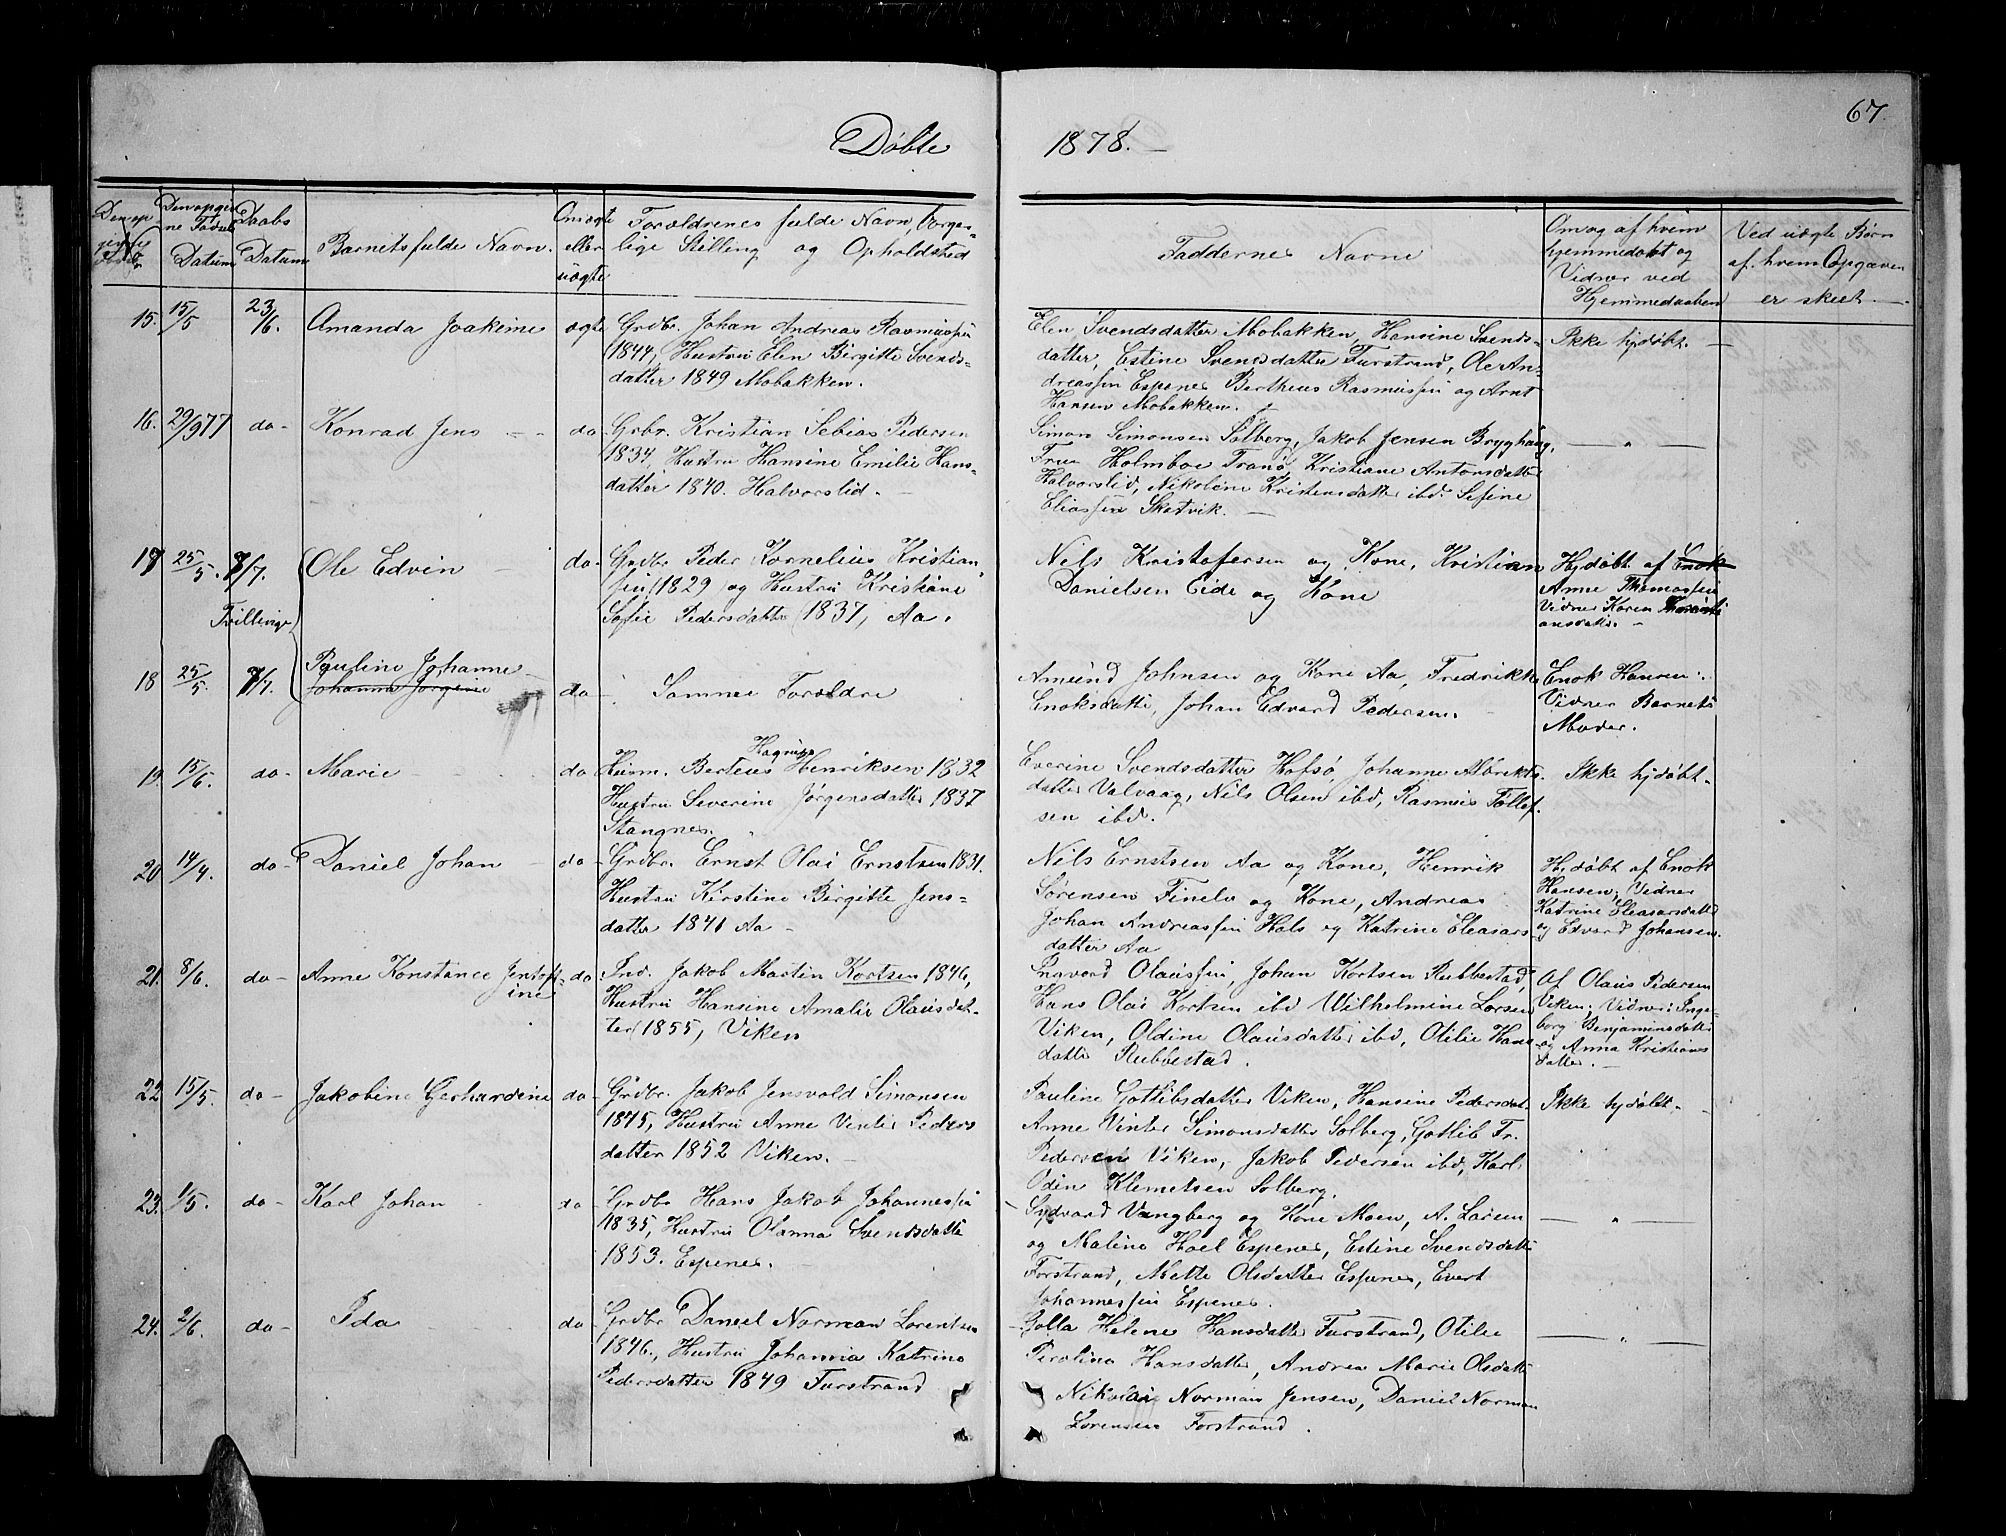 67.
Döbte 1878.
Den opgivne Fødsels Datum
Daabs Datum
Barnets fulde Navn.
Om ægte eller uægte
Forældrenes fulde Navn, borgerlige Stilling og Opholdsted
Faddernes Navne
Om og af hvem hjemmedøbt og Vidner ved Hjemmedaaben
Ved uægte Børn af hvem Opgaven er skeet.
15. 15/5 23/6. Amanda Joakime ægte Grdbr. Johan Andreas Rasmussen
1844, Hustru Elen Birgitte Svends-
datter 1849 Mobakken.
Elen Svendsdatter Mobakken, Hansine Svends-
datter, Estine Svensdatter Furstrand, Ole An-
dreassen Espenes Bertheus Rasmussen og Arnt
Hansen Mobakken.
Ikke hjdøbt. —
16. 29/9 77 do - Konrad Jens do Grbr. Kristian Tebias Pedersen
1834, Hustru Hansine Emilie Hans-
datter 1840. Halvorslid. -
Simon Simonsen Solberg, Jakob Jensen Bryghaug,
Frue Holmboe Tranø, Kristiane Antonsdatter
Halvorslid, Nikoline Kristensdatter ibd. Sefine
Eliassen Skatvik. —
— " —
17 25/5. 7/7. Ole Edvin do. Grdbr Peder Kornelius Kristian-
sen (1829 og Hustru Kristiane
Sofie Pedersdatter (1837, Aa.
Nils Kristofersen og Kone, Kristian
Danielsen Eide og Kone
Hjdøbt af Enok
Anne Thomassen
Vidner Karen
ansdatter. -
Tvillinge
18 25/5. 7/7. Pauline Johanne
Johanna Jørgine
do - Samme Forældre
Amund Johnsen og Kone Aa, Fredrikke
Enoksdatter, Johan Edvard Pedersen.
Enok Hansen:
Vidner Barnets
Moder.
19. 15/6. do - Marie do Husm. Berteus Hagrups Henriksen 1832
Hustru Severine Jørgensdatter 1837
Stangnes.
Everine Svendsdatter Hofsø, Johanne Albrikts-
datter Valvaag, Nils Olsen ibd, Rasmus Tollef-
sen ibd.
Ikke hjdøbt-
20 14/4. do - Daniel Johan do Grdbr. Ernst Olai Ernstsen 1831.
Hustru Kirstine Birgitte Jens-
datter 1841 Aa -
Nils Ernstsen Aa og Kone, Henrik
Sørensen Finelv og Kone, Andreas
Johan Andreassen Hals og Katrine Eleasars-
datter Aa
Hjdøbt af Enok
Hansen; Vidner
Katrine Eleasarsdatter
og Edvard Johansen.
21. 8/6. do - Anne Konstance Jentoft-
ine
do. Ind. Jakob Martin Kortsen 1846,
Hustru Hansine Amalie Olausdat-
ter (1855, Viken
Ingvard Olaussen, Johan Kortsen Rubbestad,
Hans Olai Kortsen ibd Wilhelmine Larsen
Viken, Oldine Olausdatter ibd, Otilie Hans
datter Rubbestad.
Af Olaus Pedersen
Viken; Vidner: Inge-
borg Benjaminsdatter
og Anna Kristians
datter. -
22 15/5. do - Jakobine Gerhardine do - Grdbr. Jakob Jensvold Simonsen
1845, Hustru Anne Vinter Peders
datter 1852 Viken. -
Pauline Gotlibsdatter Viken, Hansine Pedersdat-
Anne Vinter Simonsdatter Solberg, Gotlib Fr.
Pedersen Viken, Jakob Pedersen ibd, Karl
Odin Klemetsen Solberg.
Ikke hjdøbt -
23. 1/5. do - Karl Johan do Grdbr Hans Jakob Johannessen
1835, Hustru Olanna Svendsdatter
1853. Espenes.
Sydvard Vangberg og Kone Moen, A. Larsen
og Malina Hoel Espenes, Estine Svendsdatter
Forstrand, Mette Olsdatter Espenes, Evert
Johannessen Espenes.
— " —
24. 2/6. do - Ida do Grdbr Daniel Norman Lorentsen
1846., Hustru Johanna Katrina
Pedersdatter 1849 Furstrand
Golla Helene Hansdatter Furstrand, Otilie
Perolina Hansdatter, Andrea Marie Olsdatter
Nikolai Norman Jensen, Daniel Norman
Lorensen Forstrand.
— " —